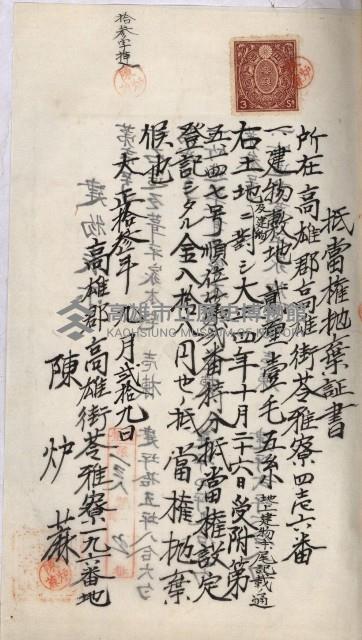 拾参字挿入
抵當權抛棄証書
所在高雄郡高雄街苓雅寮四壱六番
一、建物敷地 貳厘壹毛五糸 地上建物末尾記載通
右土地及建物ニ對シ大正四年十月二十六日受附第
五四七号順位 貳番持分抵當權設定
登記シタル金八拾 円也抵當權抛棄
候也
大正拾参年九月貳拾九日
高雄郡高雄街苓雅寮九六番地
陳炉蔴
高雄市立歷史博物館
KAOHSIUNG MUSEUM OF